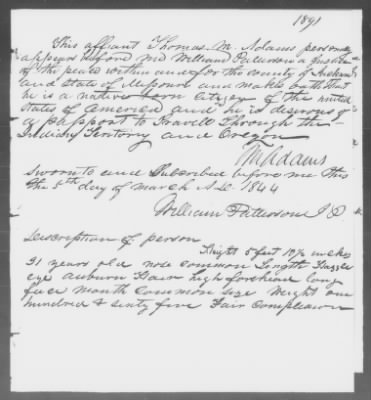 1891
This affiant Thomas M. Adams personaly
appears before me William Patterson a Justice
of the peace within and for the county of
and State of Missouri and makes oath that
he is a native born citizen of the united
States of America and is desirous of
a passport to Travell Through the
Indian Territory and Oregon
TM Adams
Sworn to and Subscribed before me this
the 5th day of March A.D. 1844
William Patterson J P
Description of person
Height 5 feet 10½ inches
31 years old nose common length Hazzle
eye auburn Hair high forehead long
face Mouth Common size Weight one
hundred & sixty five Fair Complexion